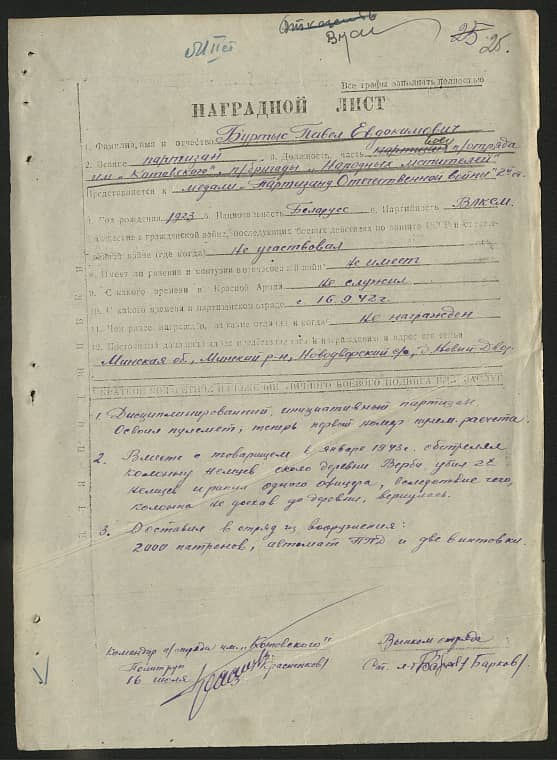 Отказать
25 25.
Все графы заполнять полностью
НАГРАДНОЙ ЛИСТ
1. Фамилия, имя и отчество Буртыс Павел Евдокимович
2. Звание партизан 3. Должность, часть боец п/отряда
им. "Котовского", п/бригады "Народных Мстителей"
Представляется к медали "Партизану Отечественной войны" 2й ст.
4. Год рождения 1923 5. Национальность Беларусс 6. Партийность ВЛКСМ.
7. Участие в гражданской войне, последующих боевых действиях по защите СССР и отечественной войне (где когда) Не участвовал
8. Имеет ли ранения и контузии в отечественной войне Не имеет
9. С какого времени в Красной Армии Не служил
10. С какого времени в партизанском отряде с 16.9.42г
11. Чем ранее награжден, за какие отличия и когда Не награжден
12. Постоянный домашний адрес представляемого к награждению и адрес его семьи
Минская об., Минский р-н, Новодворский с/с, д. Новый Двор.
КРАТКОЕ КОНКРЕТНОЕ ИЗЛОЖЕНИЕ ЛИЧНОГО БОЕВОГО ПОДВИГА ИЛИ ЗАСЛУГ
1. Дисциплинированный, инициативный партизан.
Освоил пулемет, теперь первый номер пулем. расчета.
2. Вместе с товарищем в январе 1943г. обстрелял
колонну немцев около деревни Верба убил 2х
немцев и ранил одного офицера, вследствие чего,
колонна не доехав до деревни, вернулась.
3. Доставил в отряд из вооружения:
2000 патронов, автомат ППД и две винтовки.
Командир п/отряда им. "Котовского" Военком отряда
Политрук /Красненков/ Ст. л-т /Барков/
16 июля